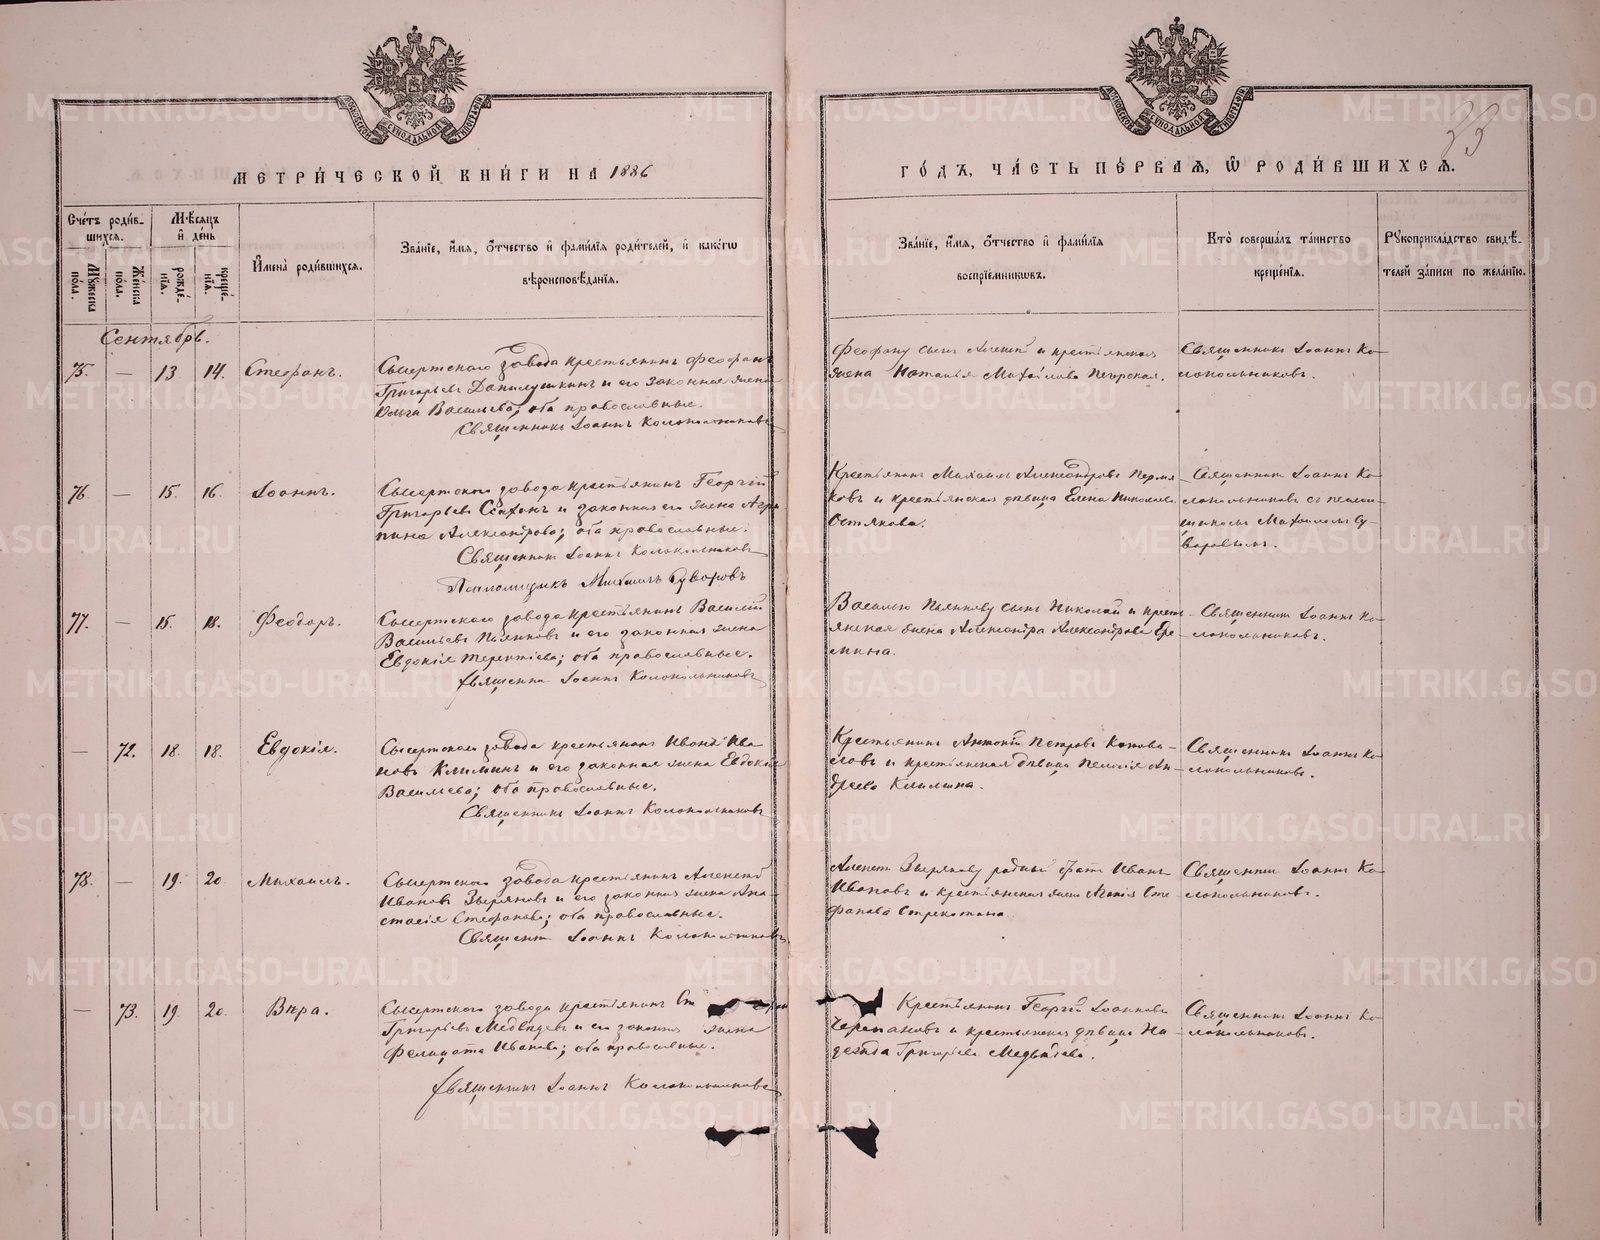 МОСКОВСКОЙ СѴНОДАЛЬНОЙ ТИПОГРАФІИ
МОСКОВСКОЙ СѴНОДАЛЬНОЙ ТИПОГРАФІИ
МЕТРИ́ЧЕСКОЙ КНИ́ГИ НА 1886
ГО́ДЪ, ЧА́СТЬ ПЕ́РВАЯ, Ѡ РОДИ́ВШИХСЯ.
Сче́тъ роди́в-
шихся.
Му́жеска по́ла.
Же́нска по́ла.
Мѣ́сяцъ
и҆ де́нь
рожде́-нїя.
креще́-нїя.
И҆мена̀ роди́вшихся.
Зва́нїе, и҆́мя, ѻ҆́тчество и҆ фами́лїя роди́телей, и҆ како́гѡ
вѣроисповѣ́данїя.
Зва́нїе, и҆́мя, ѻ҆́тчество и҆ фами́лїя
воспрїе́мникѡвъ.
Кто̀ соверша́лъ та́инство
креще́нїя.
Рꙋкоприкла́дство свидѣ́-
телей за́писи по жела́нїю.
Сентябрь.
75. — 13 14. Стефанъ.
Сысертскаго завода крестьянинъ Феофанъ
Григорьевъ Данилушкинъ и его законная жена
Ольга Васильева; оба православные.
Священникъ Іоаннъ Колокольниковъ
Феофану сынъ и крестьянская
жена Наталья Михайлова
Священникъ Іоаннъ Ко-
локольниковъ.
76. — 15. 16. Іоаннъ.
Сысертскаго завода крестьянинъ Георгій
Григорьевъ и законная его жена Агри-
пина Александрова; оба православные.
Священникъ Іоаннъ Колокольниковъ
Псаломщикъ Михаилъ Суворовъ
Крестьянинъ Михаилъ Александровъ Пермя-
ковъ и крестьянская дѣвица Елена Николаева
Остякова.
Священникъ Іоаннъ Ко-
локольниковъ съ псалом-
щикомъ Михаиломъ Су-
воровымъ.
77. — 15. 18. Феодоръ.
Сысертскаго завода крестьянинъ Василій
Васильевъ и его законная жена
Евдокія Терентіева; оба православные.
Священникъ Іоаннъ Колокольниковъ
Василью сынъ Николай и кресть-
янская жена Александра Александрова Ере-
мина.
Священникъ Іоаннъ Ко-
локольниковъ.
— 72. 18. 18. Евдокія.
Сысертскаго завода крестьянинъ Иванъ Ива-
новъ Климинъ и его законная жена Евдокія
Васильева; оба православные.
Священникъ Іоаннъ Колокольниковъ
Крестьянинъ Антоній Петровъ Конова-
ловъ и крестьянская дѣвица Пелагія Ан-
дреева Климина.
Священникъ Іоаннъ Ко-
локольниковъ.
78. — 19. 20. Михаилъ.
Сысертскаго завода крестьянинъ Алексѣй
Ивановъ Зыряновъ и его законная жена Ана-
стасія Стефанова; оба православные.
Священникъ Іоаннъ Колокольниковъ
Алексѣю Зырянову родный братъ Иванъ
Ивановъ и крестьянская жена Агнія Сте-
фанова Стрекотина.
Священникъ Іоаннъ Ко-
локольниковъ.
— 73. 19. 20. Вѣра.
Сысертскаго завода крестьянинъ
Григорьевъ Медвѣдевъ и его законная жена
Фелицата Иванова; оба православные.
Священникъ Іоаннъ Колокольниковъ
Крестьянинъ Георгій Іоанновъ
Черепановъ и крестьянская дѣвица На-
дежда Григорьева Медвѣдева.
Священникъ Іоаннъ Ко-
локольниковъ.
METRIKI.GASO-URAL.RU